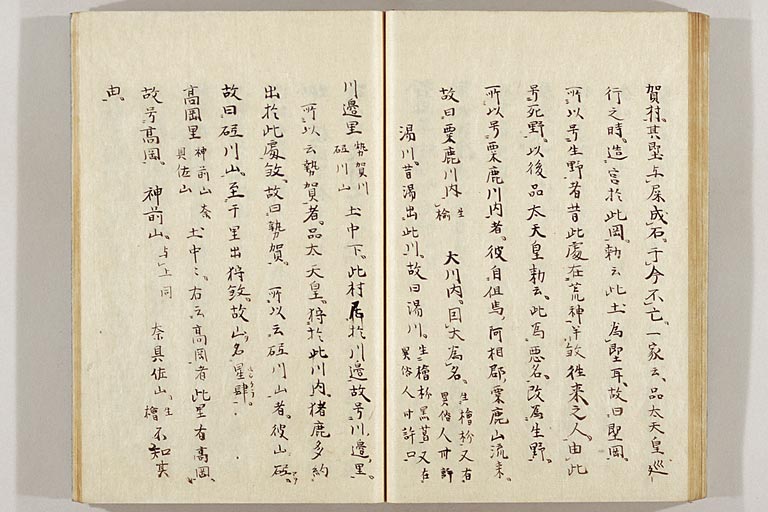 賀村。其堲与屎成石。于今不亡。一家云、品太天皇巡
行之時。造宮於此岡。勅云此土為堲耳。故曰堲岡。
所以号生野者昔此處在荒神半殺往来之人。由此
号死野。以後品太天皇勅云。此為悪名。改為生野。
所以号粟鹿川内者。彼自但馬、阿相郡、粟鹿山流来。
故曰粟鹿川内。生檜 大川内。因大為名。生檜枌又有異俗人卅許
湯川。昔湯出此川。故曰湯川。生檜枌黒葛又在異俗人卅許口
川邊里 勢賀川 砥川山 土中下。此村居於川邊故号川邊里。
所以云勢賀者。品太天皇。狩於此川内。猪鹿多約
出於此處殺。故曰勢賀。所以云砥川山者。彼山砥。
故曰砥川山。至于星出狩殺。故山名星肆。
高岡里 神前山 奈具佐山 土中々。右云高岡者此里有高岡。
故号高岡。神前山。与上同 奈具佐山。生檜 不知其
由。